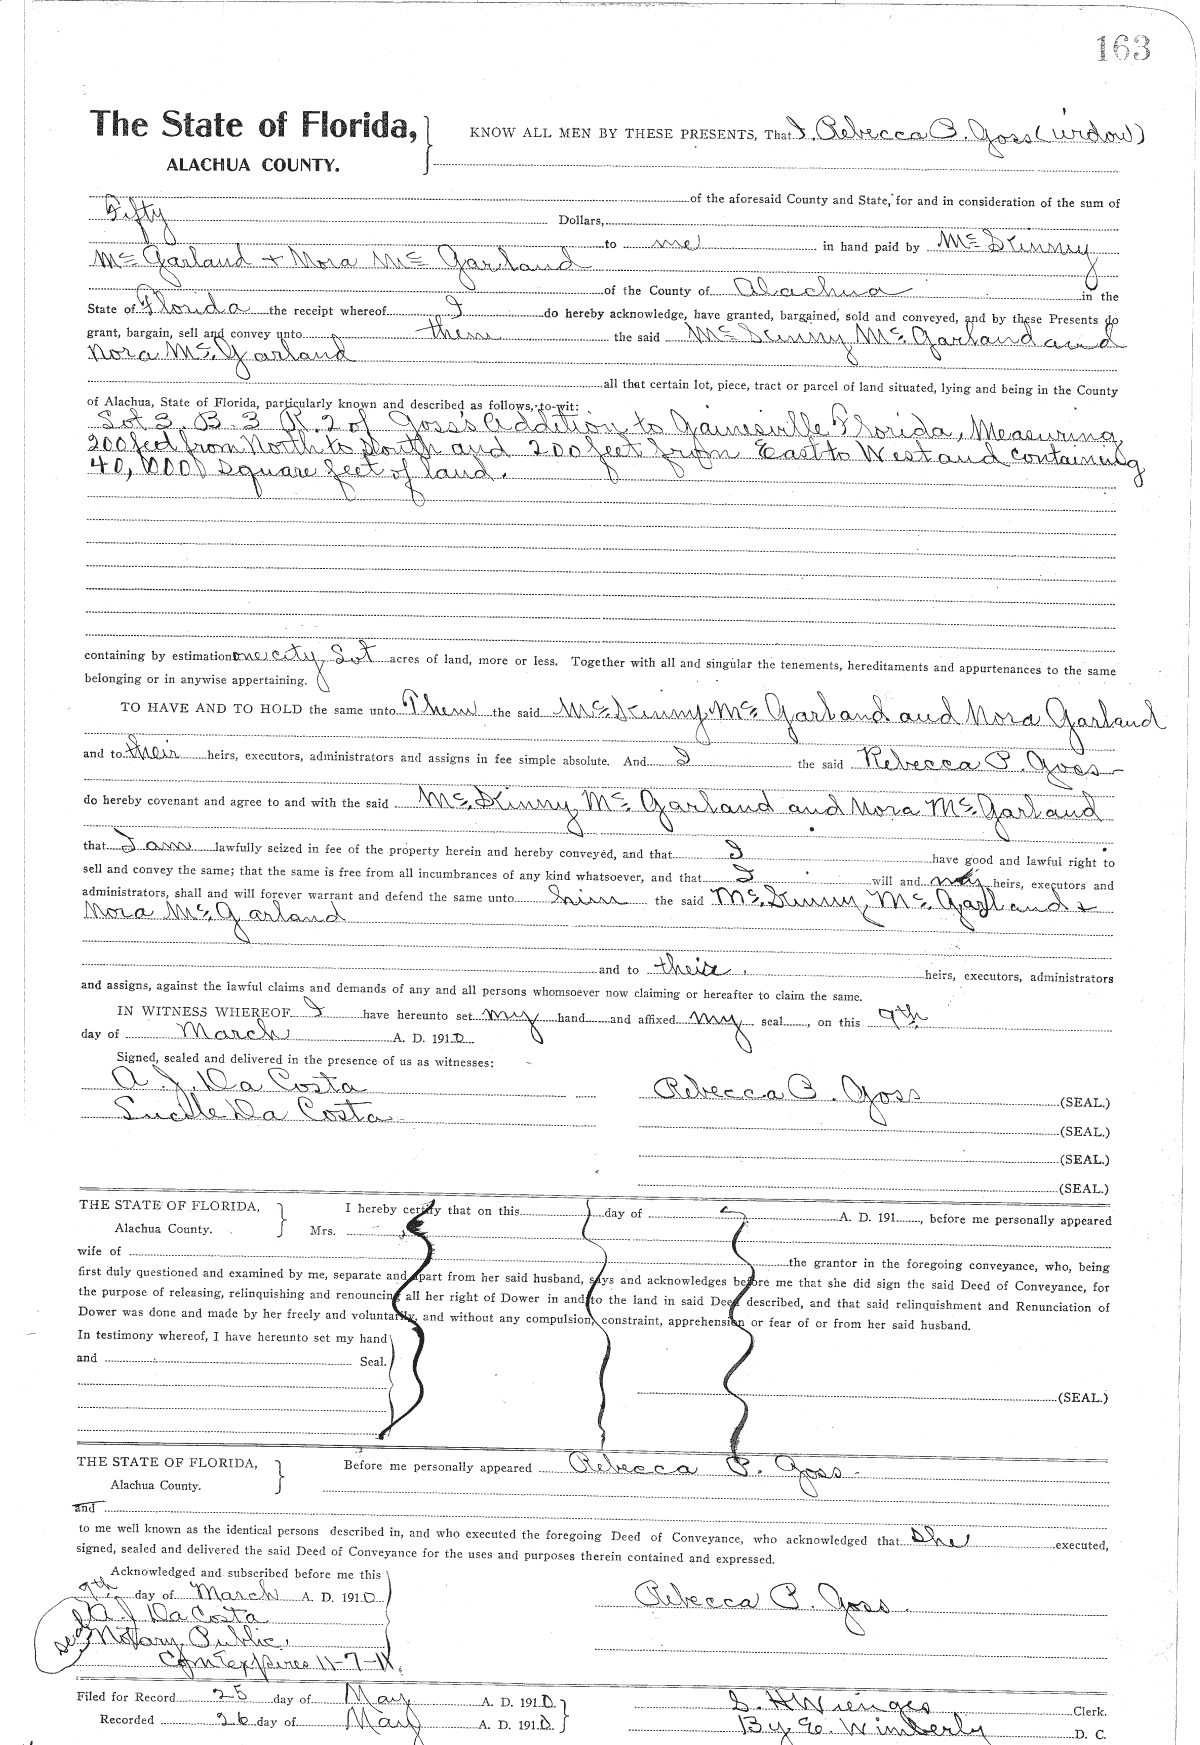 163
The State of Florida,
ALACHUA COUNTY.
KNOW ALL MEN BY THESE PRESENTS, That I, Rebecca P. Goss (widow)
of the aforesaid County and State, for and in consideration of the sum of
Fifty Dollars,
to me in hand paid by McKinny
McGarland + Nora McGarland
of the County of Alachua in the
State of Florida the receipt whereof I do hereby acknowledge, have granted, bargained, sold and conveyed, and by these Presents do
grant, bargain, sell and convey unto them the said McKinny McGarland and
Nora McGarland
all that certain lot, piece, tract or parcel of land situated, lying and being in the County
of Alachua, State of Florida, particularly known and described as follows, to-wit:
Lot 3. B. 3 R. 2 of Goss's Addition to Gainesville Florida, Measuring
200 feet from North to South and 200 feet from East to West and containing
40,000 square feet of land.
containing by estimation one city Lot acres of land, more or less. Together with all and singular the tenements, hereditaments and appurtenances to the same
belonging or in anywise appertaining.
TO HAVE AND TO HOLD the same unto Them the said McKinny McGarland and Nora Garland
and to their heirs, executors, administrators and assigns in fee simple absolute. And I the said Rebecca P. Goss
do hereby covenant and agree to and with the said McKinny McGarland and Nora McGarland
that I am lawfully seized in fee of the property herein and hereby conveyed, and that I have good and lawful right to
sell and convey the same; that the same is free from all incumbrances of any kind whatsoever, and that I will and my heirs, executors and
administrators, shall and will forever warrant and defend the same unto him the said McKinny McGarland &
Nora McGarland
and to their heirs, executors, administrators
and assigns, against the lawful claims and demands of any and all persons whomsoever now claiming or hereafter to claim the same.
IN WITNESS WHEREOF I have hereunto set my hand and affixed my seal, on this 9th
day of March A. D. 1910
Signed, sealed and delivered in the presence of us as witnesses:
A. J. Da Costa
Lucile Da Costa
Rebecca P. Goss (SEAL.)
(SEAL.)
(SEAL.)
(SEAL.)
THE STATE OF FLORIDA,
Alachua County.
I hereby certify that on this day of A. D. 191 , before me personally appeared
Mrs.
wife of the grantor in the foregoing conveyance, who, being
first duly questioned and examined by me, separate and apart from her said husband, says and acknowledges before me that she did sign the said Deed of Conveyance, for
the purpose of releasing, relinquishing and renouncing all her right of Dower in and to the land in said Deed described, and that said relinquishment and Renunciation of
Dower was done and made by her freely and voluntarily, and without any compulsion, constraint, apprehension or fear of or from her said husband.
In testimony whereof, I have hereunto set my hand
and Seal.
(SEAL.)
THE STATE OF FLORIDA,
Alachua County.
Before me personally appeared Rebecca P. Goss
and
to me well known as the identical persons described in, and who executed the foregoing Deed of Conveyance, who acknowledged that she executed,
signed, sealed and delivered the said Deed of Conveyance for the uses and purposes therein contained and expressed.
Acknowledged and subscribed before me this
9th day of March A. D. 1910
A. J. Da Costa
seal Notary Public.
Com Expires 11-7-11.
Rebecca P. Goss
Filed for Record 25 day of May A. D. 1910
Recorded 26 day of May A. D. 1910
S. H Wienges Clerk.
By E. Wimberly D. C.